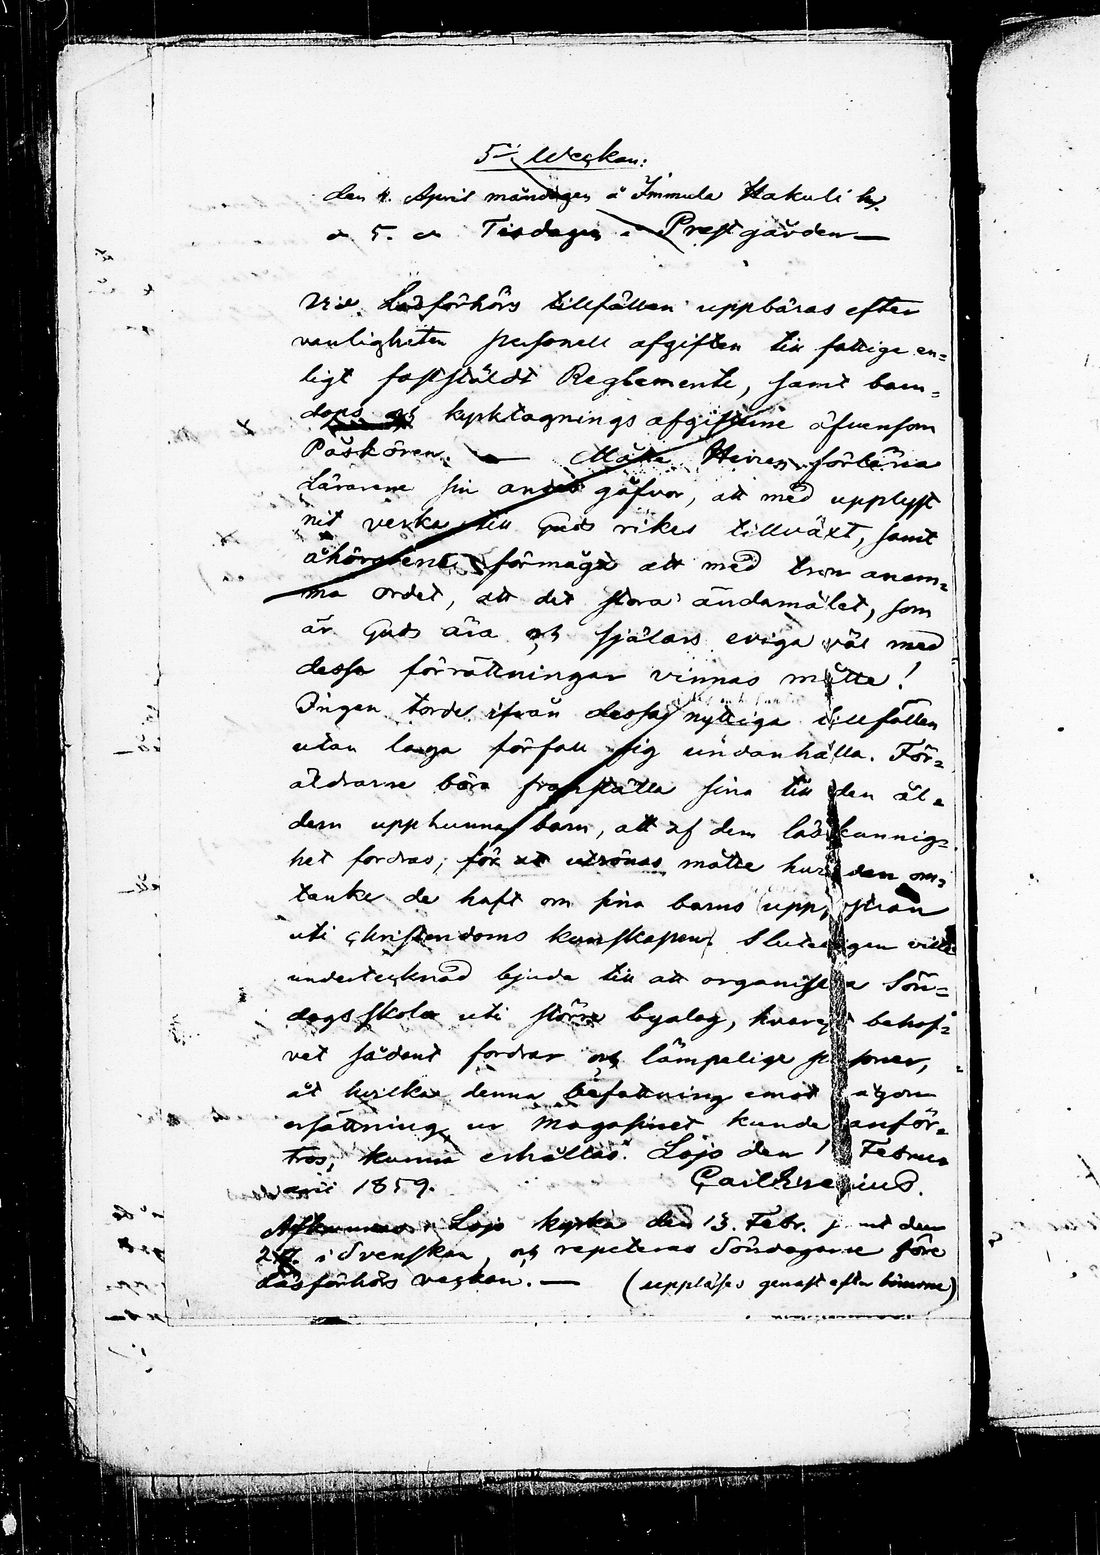 5te Weckan:
den 4. April måndagen å Immula Hakuli by.
d 5. d Tisdagen å Prestgården —
Vid Läsförhörs tillfällen uppbäras efter
vanligheten personell afgiften till fattige en=
ligt fastställdt Reglemente, samt barn=
dops och kyrktagnings afgifterne äfvensom
Påskören. — Måtte Herren förläna
Lärarene sin andes gåfvor, att med upplyst
nit verka till Guds rikes tillväxt, samt
åhörarene förmåga att med tron anam=
ma ordet, att det stora ändamålet, som
är Guds ära och själars eviga väl med
dessa förrättningar vinnas måtte!
Ingen torde ifrån dessa nyttiga tillfällen
utan laga förfall sig undanhålla. För=
äldrarne böra framställa sina till den ål=
dern upphunna barn, att af dem läskunnig=
het fordras, för att utrönas måtte hurudan om=
tanke de haft om sina barns uppfostran
uti christendoms kunskapen. Slutligen ville
undertecknad bjuda till att organisera Sön=
dagsskolor uti större byalag, hvarest behof=
vet sådant fordrar och lämpelige personer,
åt hvilka denna befattning emot någon
ersättning ur Magasinet kunde anför=
tros, kunna erhållas. Lojo den 1 Februa
arii 1859.
Lojo kyrka den 13. Febr. samt den
27. i Svenskan, och repeteras Söndagarne före
Läsförhörs veckan. — (uppläses genast efter bönerne)